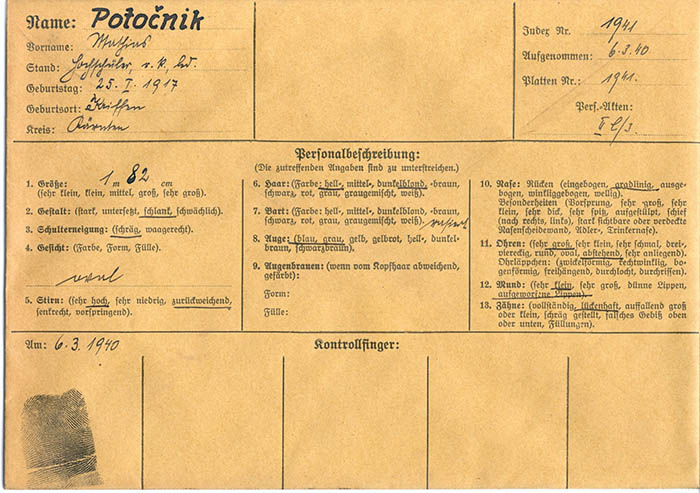 Name: Potočnik
Vorname: Mathias
Stand: Hochschüler, r. k., led.
Geburtstag: 25. I. 1917
Geburtsort:
Kreis: Kärnten
Index Nr. 1941
Aufgenommen: 6.3.40
Platten Nr.: 1941.
Pers.-Akten:
Personalbeschreibung:
(Die zutreffenden Angaben sind zu unterstreichen.)
1. Größe: 1 m 82 cm
(sehr klein, klein, mittel, groß, sehr groß).
2. Gestalt: (stark, untersetzt, schlank, schwächlich).
3. Schulterneigung: (schräg, waagerecht).
4. Gesicht: (Farbe, Form, Fülle).
oval
5. Stirn: (sehr hoch, sehr niedrig, zurückweichend,
senkrecht, vorspringend).
6. Haar: (Farbe: hell-, mittel-, dunkelblond, -braun,
schwarz, rot, grau, graugemischt, weiß).
7. Bart: (Farbe: hell-, mittel-, dunkelblond, -braun
schwarz, rot, grau, graugemischt, weiß). rasiert
8. Auge: (blau, grau, gelb, gelbrot, hell-, dunkel-
braun, schwarzbraun).
9. Augenbrauen: (wenn vom Kopfhaar abweichend,
gefärbt):
Form:
Fülle:
10. Nase: Rücken (eingebogen, gradlinig, ausge-
bogen, winkliggebogen, wellig).
Besonderheiten (Vorsprung, sehr groß, sehr
klein, sehr dick, sehr spitz, aufgestülpt, schief
(nach rechts, links), stark sichtbare oder verdeckte
Nasenscheidewand, Adler-, Trinkernase).
11. Ohren: (sehr groß, sehr klein, sehr schmal, drei-
viereckig, rund, oval, abstehend, sehr anliegend).
Ohrläppchen: (zwickelförmig, rechtwinklig, bo-
genförmig, freihängend, durchlocht, durchrissen).
12. Mund: (sehr klein, sehr groß, dünne Lippen,
aufgeworfene Lippen).
13. Zähne: (vollständig, lückenhaft, auffallend groß
oder klein, schräg gestellt, falsches Gebiß oben
oder unten, Füllungen).
Am: 6.3.1940
Kontrollfinger: